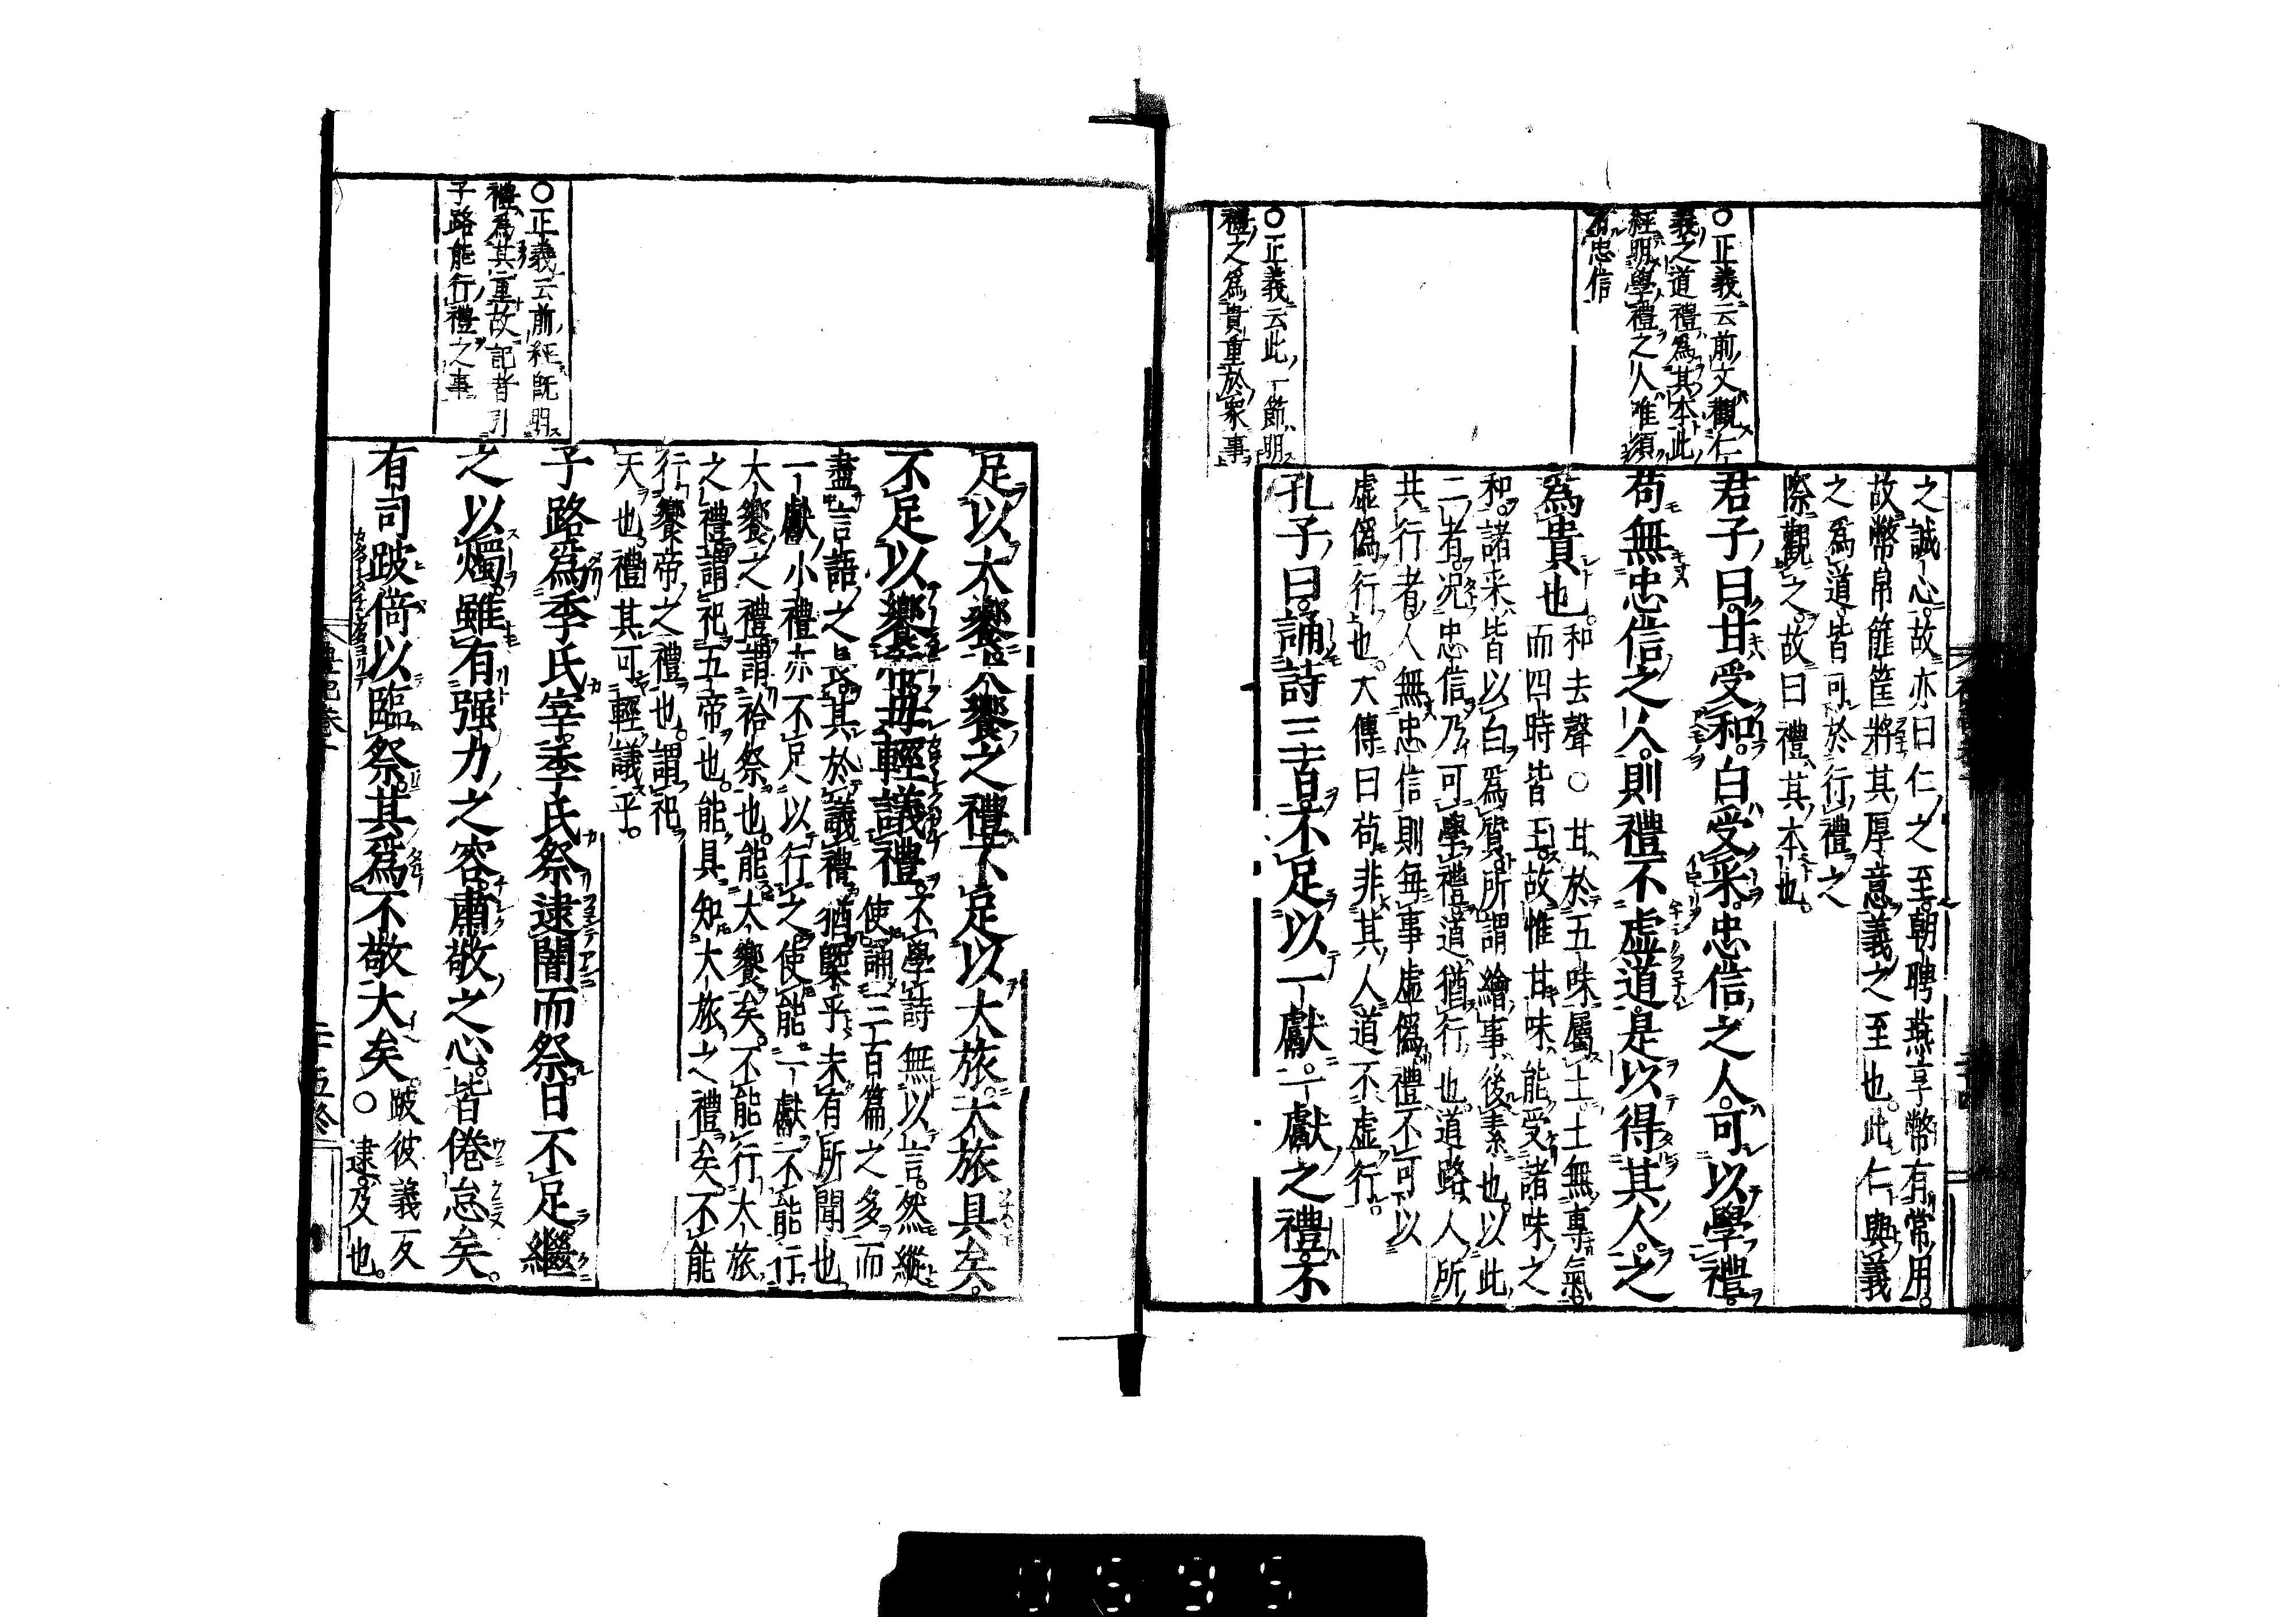 ○正義云前文觀仁
義之道禮爲其本此
經明學禮之人唯須
有忠信
○正義云此一節明
禮之爲貴重於衆事
之誠心故亦曰仁之至朝聘燕享幣有常用。
故幣帛篚筐將其厚意義之至也。此仁與義
之爲道皆可於行禮之
際觀之。故曰禮其本也。
君子曰。甘受和。白受采。忠信之人。可以學禮。
苟無忠信之人。則禮不虛道。是以得其人。之
爲貴也。
和去聲○甘於五味屬土土無專氣。
而四時皆王。故惟甘味能受諸味之
和。諸采皆以白爲質。所謂繪事後素也。以此
二者。況忠信乃可學禮。道猶行也。道路人所
共行者。人無忠信則每事虛僞禮不可以
虛僞行也。大傳曰苟非其人道不虛行。
孔子曰。誦詩三百。不足以一獻。一獻之禮。不
足以大饗。大饗之禮不足以大旅。大旅具矣。
不足以饗帝。毋輕議禮。
不學詩無以言。然縱
使誦三百篇之多。而
盡言語之長。其於議禮猶槩乎未有所聞也
一獻小禮亦不足以行之使能一獻不能行
大饗之禮謂祫祭也。能大饗矣。不能行大旅
之禮謂祀五帝也。能具知大旅之禮矣不能
行饗帝之禮也。謂祀
天也。禮其可輕議乎。
○正義云前經旣明
禮爲其重故記者引
子路能行禮之事
子路爲季氏宰。季氏祭。逮闇而祭。日不足。繼
之以燭。雖有强力之容。肅敬之心。皆倦怠矣。
有司跛倚以臨祭。其爲不敬大矣。
跛彼義反
○逮。及也。
禮記卷十
二十五終